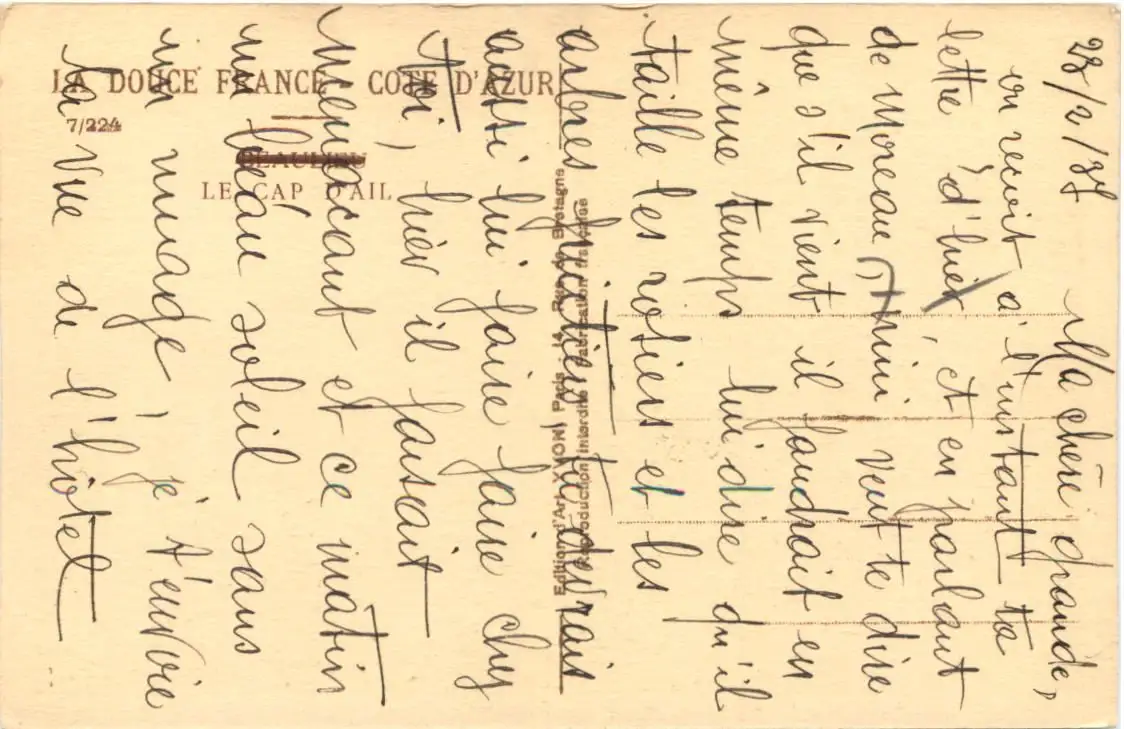 LA DOUCE FRANCE - COTE D'AZUR
7/224
BEAULIEU
LE CAP D'AIL
Edition d'Art YVON, Paris - 14, Rue de Bretagne
Reproduction interdite Fabrication française
23/2/37
Ma chère grande,
on reçoit à l'instant ta
lettre d'hier, et en parlant
de Moreau, Mini veut te dire
que s'il vient il faudrait en
même temps lui dire qu'il
taille les rosiers et les
arbres fruitiers, tu devrais
aussi lui faire faire chez
toi, hier il faisait
menaçant et ce matin
un beau soleil sans
un nuage, je t'envoie
la vue de l'hôtel